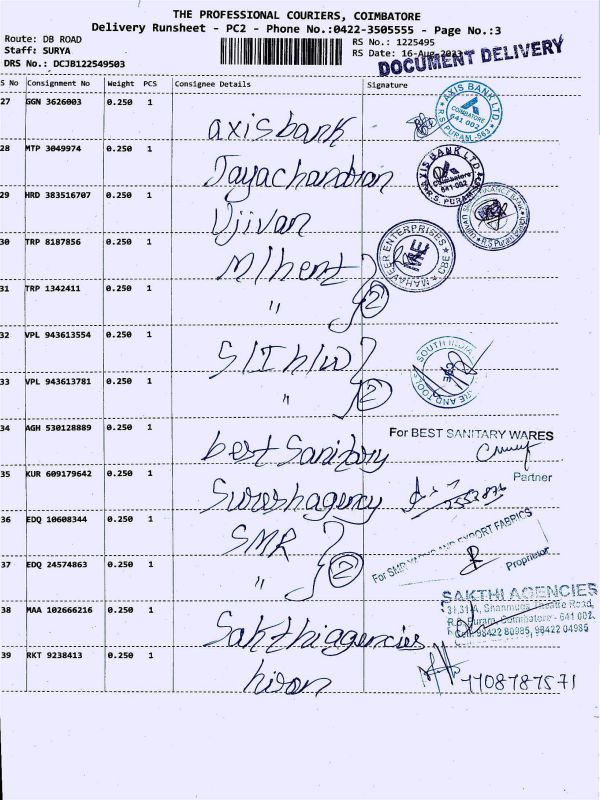 THE PROFESSIONAL COURIERS, COIMBATORE
Delivery Runsheet - PC2 - Phone No.:0422-3505555 - Page No.:3
Route: DB ROAD
RS No.: 1225495
Staff: SURYA
RS Date: 16-Aug-2023
DRS No.: DCJB122549503
DOCUMENT DELIVERY
S No Consignment No Weight PCS Consignee Details Signature
27 GGN 3626003 0.250 1
axis bank
AXIS BANK LTD. COIMBATORE 641 002. R S PURAM -563
28 MTP 3049974 0.250 1
Jayachandran
AXIS BANK LTD. Coimbatore 641-002 R.S. PURAM
29 HRD 383516707 0.250 1
Ujjivan
R S Puram Branch
30 TRP 8187856 0.250 1
M/hent
MAHAVEER ENTERPRISES CBE ME
31 TRP 1342411 0.250 1
" 2
32 VPL 943613554 0.250 1
S/I h/w
SOUTH INDIA AND TOOLS CBE
33 VPL 943613781 0.250 1
" 2
34 AGH 530128889 0.250 1
best Sanitary
For BEST SANITARY WARES
Partner
35 KUR 609179642 0.250 1
Suresh agency
36 EDQ 10608344 0.250 1
SMR
For SMR AND EXPORT FABRICS
Proprietor
37 EDQ 24574863 0.250 1
" 2
38 MAA 102666216 0.250 1
Sakthi agencies
SAKTHI AGENCIES
31,31-A, Shanmuga Theatre Road,
R.S. Puram, Coimbatore - 641 002.
Cell: 98422 80985, 98422 04985
39 RKT 9238413 0.250 1
hiron
7708787571